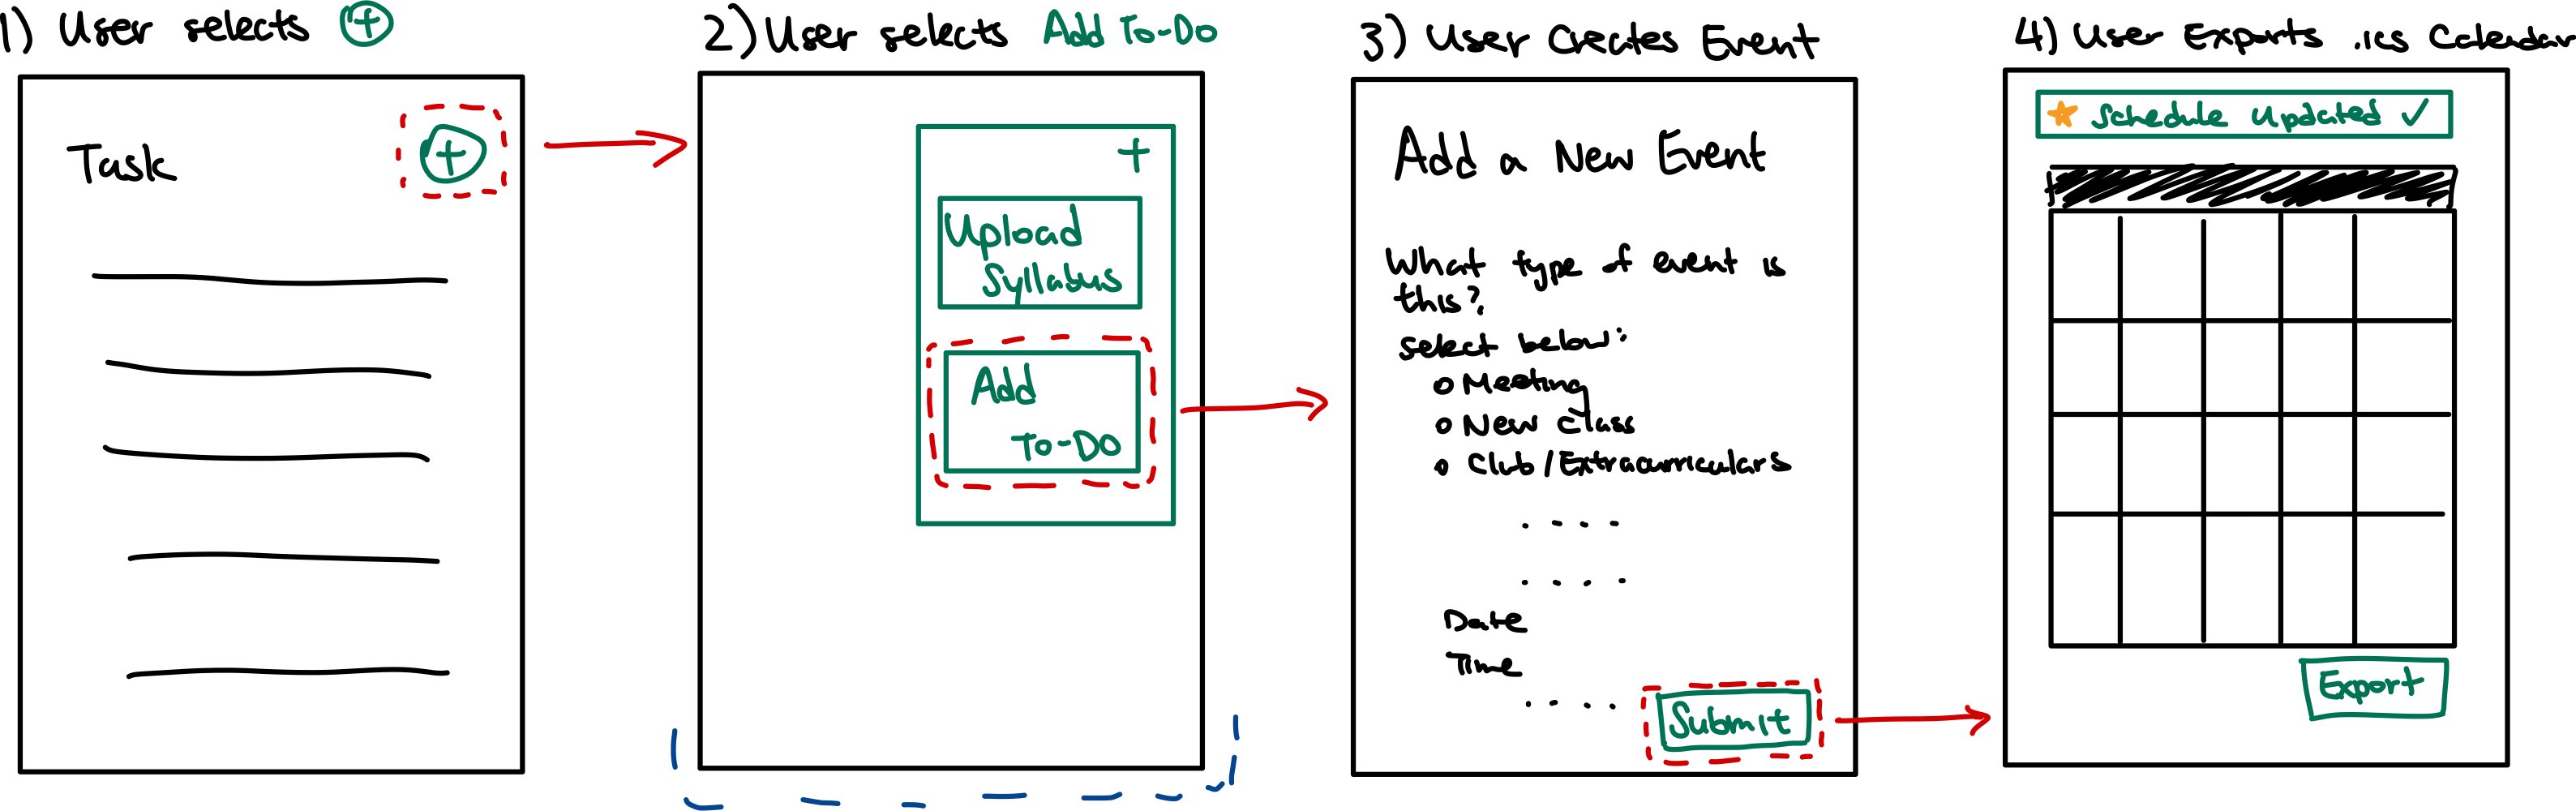 1) User selects +
Task
+
2) User selects Add To-Do
+
Upload
Syllabus
Add
To-Do
3) User Creates Event
Add a New Event
What type of event is
this?
select below:
o Meeting
o New Class
o Club/Extracurriculars
. . . .
. . . .
Date
Time
. . . .
Submit
4) User Exports .ics Calendar
Schedule Updated ✓
Export